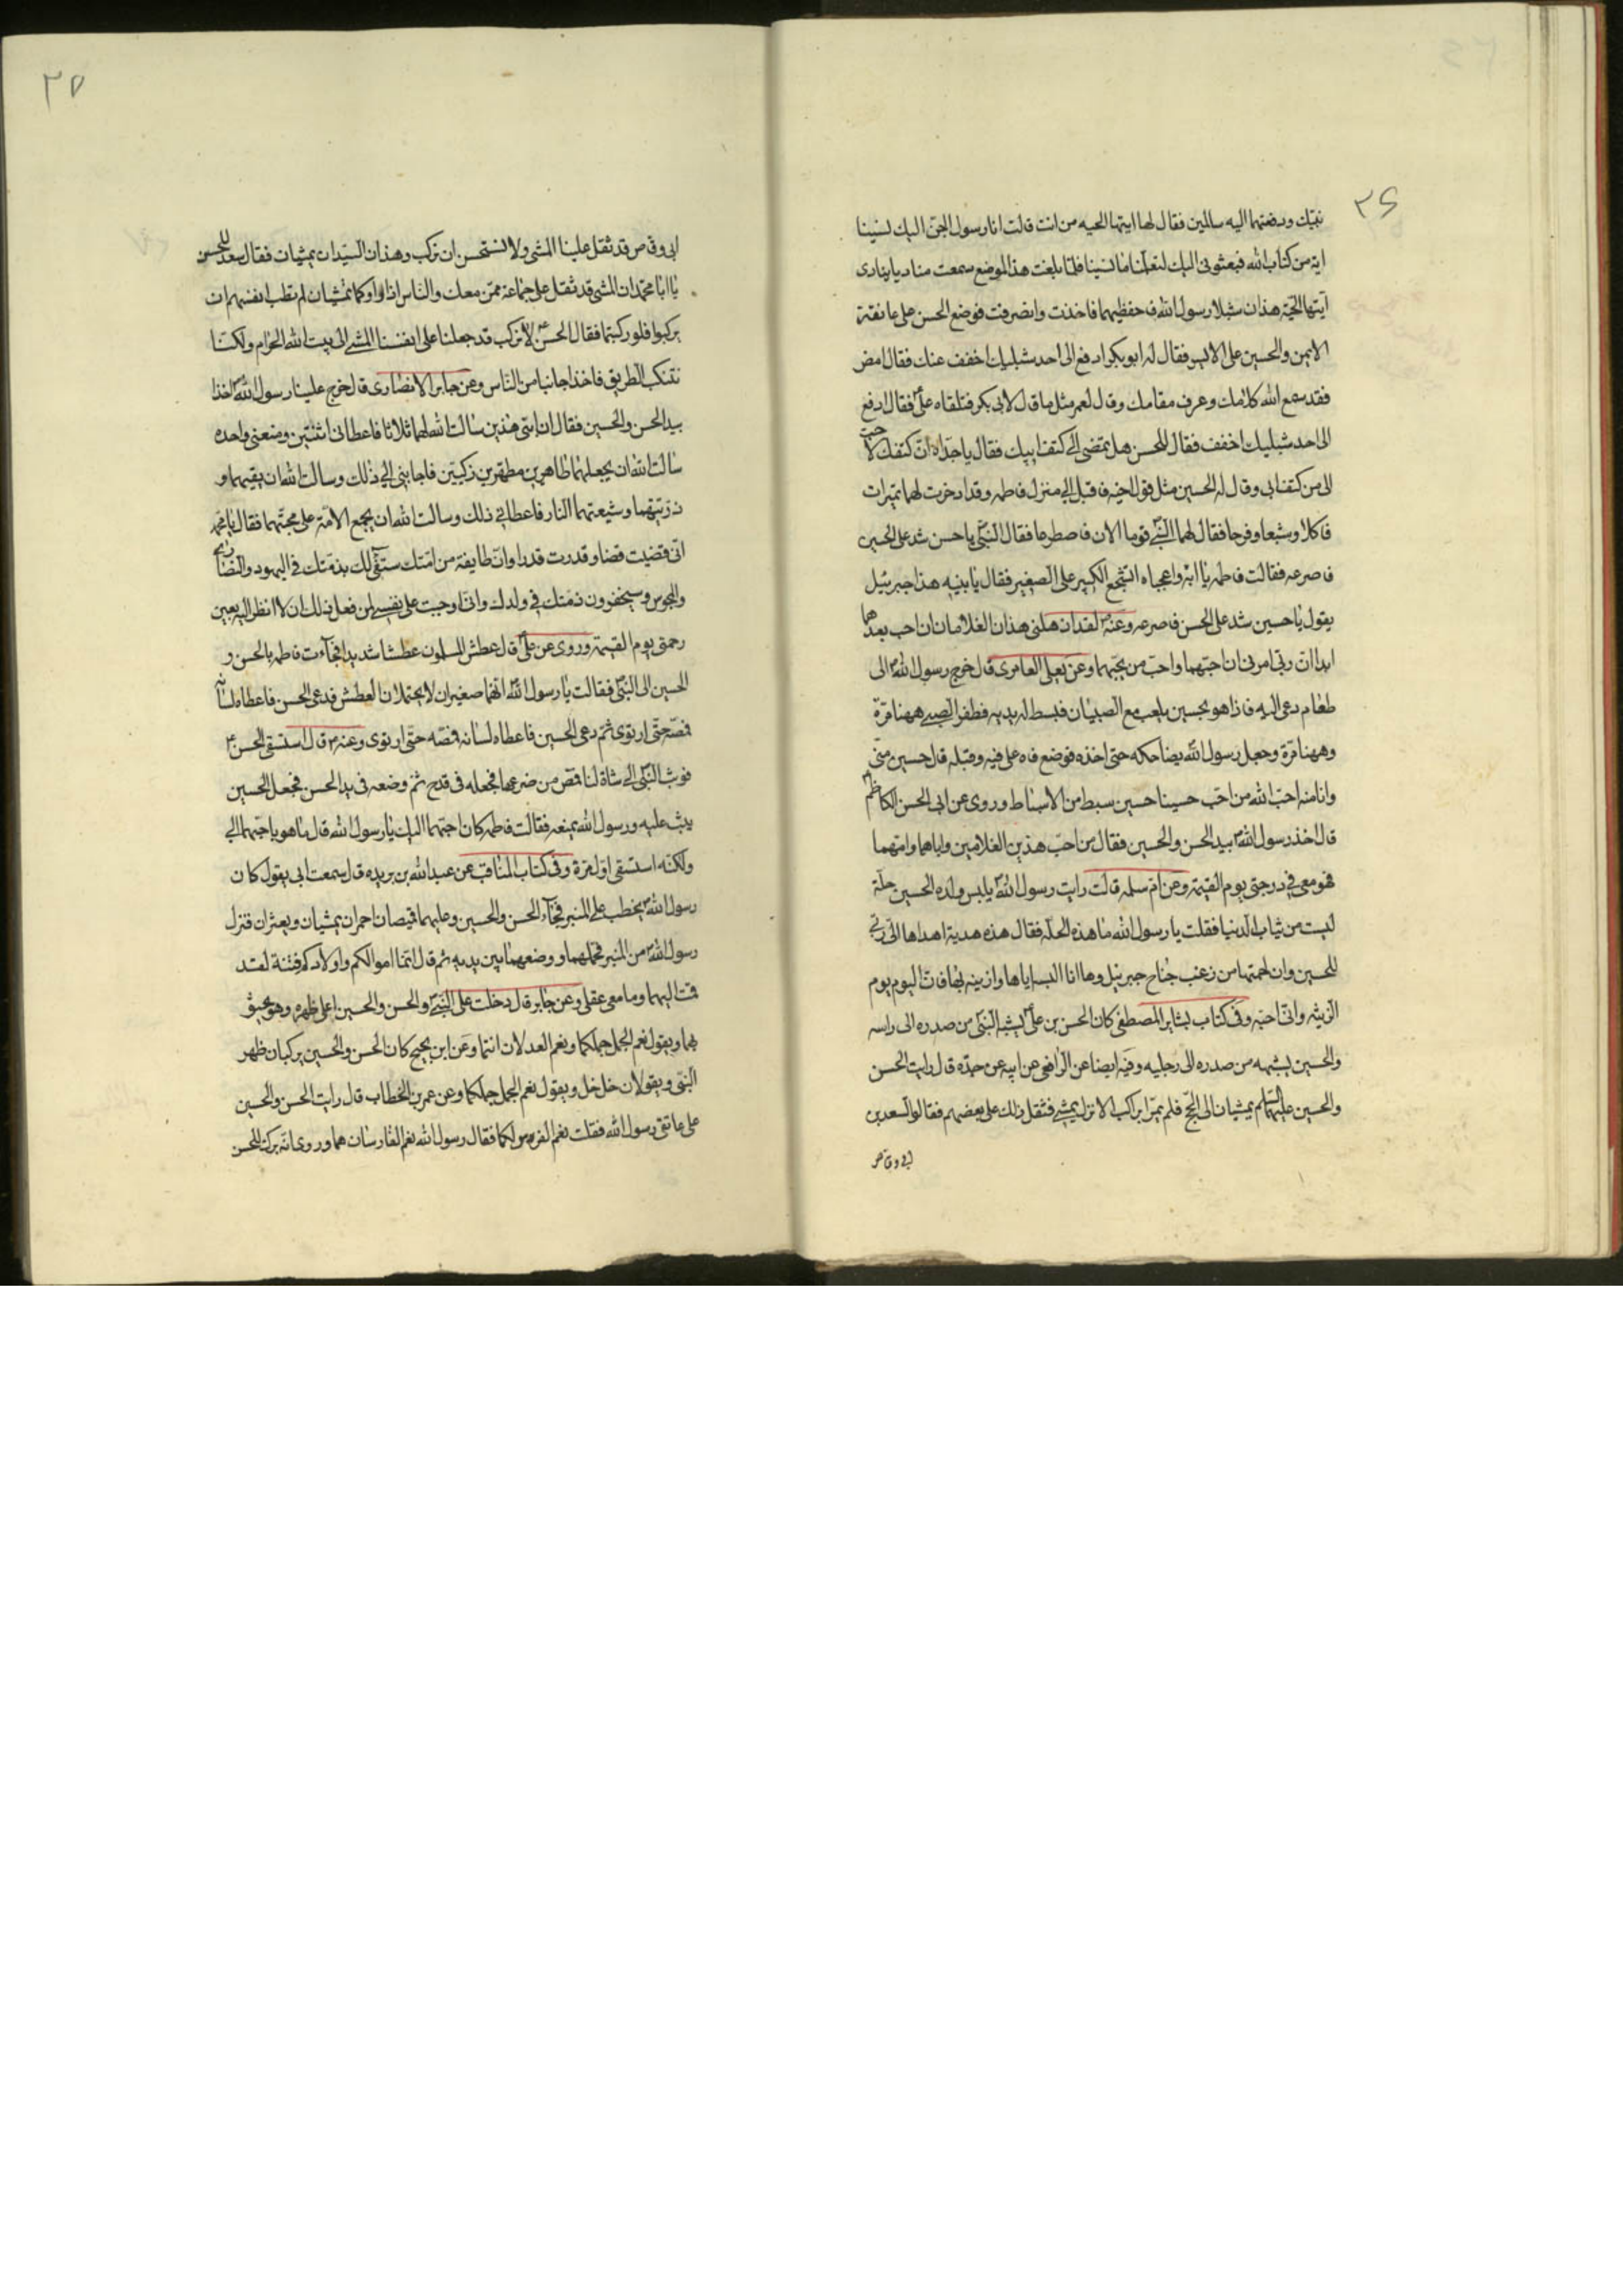 ٣٦
نبيّك ودفعتهما اليه سالمين فقال لها ايتها الحيه من انت قالت انا رسول الجنّ اليك نسينا
اية من كتاب الله فبعثوني اليك لتعلّمنا ما نسينا فلمّا بلغت هذا الموضع سمعت مناديا ينادى
ايّتها الحيّة هذان شبلا رسول الله فاحفظيهما فاخذت وانصرفت فوضع الحسن على عاتقه
الايمن والحسين على الايسر فقال له ابو بكر ادفع الى احد شبليك اخفف عنك فقال امض
فقد سمع الله كلامك وعرف مقامك وقال لعمر مثل ما قال لابى بكر فتلقاه علىّ فقال ادفع
الى احد شبليك اخفف فقال للحسن هل تمضى الى كتف ابيك فقال يا جدّاه انّ كتفك لاحبّ
الى من كتف ابى وقال له الحسين مثل قول اخيه فاقبل الى منزل فاطمه وقد ادخرت لهما تميرات
فاكلا وشبعا وفرحا فقال لهما النبىّ قوما الان فاصطرعا فقال النبىّ يا حسن شد على الحسين
فاصرعه فقالت فاطمه يا ابه واعجباه اتشجع الكبير على الصغير فقال يا بنيه هذا جبرئيل
يقول يا حسين شد على الحسن فاصرعه وعنه لقد اذهلنى هذان الغلامان ان احب بعدهما
ابدا انّ ربّى امرنى ان احبّهما واحبّ من يحبّهما وعن يعلى العامرى قال خرج رسول الله الى
طعام دعى اليه فاذا هو بحسين يلعب مع الصبيان فبسط له يديه فطفر الصبى ههنا مرّة
وههنا مرّة وجعل رسول الله يضاحكه حتى اخذه فوضع فاه على فيه وقبله قال حسين منّى
وانا منه احبّ الله من احبّ حسينا حسين سبط من الاسباط وروى عن ابى الحسن الكاظم
قال اخذ رسول الله بيد الحسن والحسين فقال من احبّ هذين الغلامين واباهما وامّهما
فهو معى فى درجتى يوم القيمة وعن امّ سلمه قالت رايت رسول الله يلبس ولده الحسين حلة
ليست من ثياب الدنيا فقلت يا رسول الله ما هذه الحله فقال هذه هدية اهداها الىّ ربّى
للحسين وان لحمتها من زغب جناح جبرئيل وها انا البسه اياها وازينه بها فانّ اليوم يوم
الزينه وانّى احبّه وفى كتاب بشاير المصطفى كان الحسن بن علىّ يشبه النبىّ من صدره الى راسه
والحسين يشبهه من صدره الى رجليه وفيه ايضا عن الرافعى عن ابيه عن جدّه قال رايت الحسن
والحسين عليهما السلم يمشيان الى الحجّ فلم يمرّا براكب الا نزل يمشى فثقل ذلك على بعضهم فقالوا لسعد بن
ابى وقاص
٣٧
ابى وقاص قد ثقل علينا المشى ولا نستحسن ان نركب وهذان السيّدان يمشيان فقال سعد للحسن
يا ابا محمّد ان المشى قد ثقل على جماعة ممّن معك والناس اذا راوكما تمشيان لم تطب انفسهم ان
يركبوا فلو ركبتما فقال الحسن لا نركب قد جعلنا على انفسنا المشى الى بيت الله الحرام ولكنّا
نتنكب الطريق فاخذا جانبا من الناس وعن جابر الانصارى قال خرج علينا رسول الله اخذا
بيد الحسن والحسين فقال ان ابنىّ هذين سالت الله لهما ثلاثا فاعطانى اثنتين ومنعنى واحده
سالت الله ان يجعلهما طاهرين مطهرين زكيّين فاجابنى الى ذلك وسالت الله ان يقيهما و
ذرّيتهما وشيعتهما النار فاعطانى ذلك وسالت الله ان يجمع الامّة على محبّتهما فقال يا محمّد
انّى قضيت قضاء وقدرت قدرا وانّ طايفة من امّتك ستفى لك بذمّتك فى اليهود والنصارى
والمجوس وسيخفرون ذمّتك فى ولدك وانّى اوجبت على نفسى لمن فعل ذلك ان لا انظر اليه بعين
رحمتى يوم القيمة وروى عن علىّ قال عطش المسلمون عطشا شديدا فجآءت فاطمه بالحسن و
الحسين الى النبىّ فقالت يا رسول الله انّهما صغيران لا يحتملان العطش فدعى الحسن فاعطاه لسانه
فمصّه حتّى ارتوى ثمّ دعى الحسين فاعطاه لسانه فمصّه حتّى ارتوى وعنه قال استسقى الحسن
فوثب النبىّ الى شاة لنا فمصّ من ضرعها فجعله فى قدح ثمّ وضعه فى يد الحسن فجعل الحسين
يثب عليه ورسول الله يمنعه فقالت فاطمه كان احبّهما اليك يا رسول الله قال ما هو باحبّهما الىّ
ولكنّه استسقى اوّل مرّة وفى كتاب المناقب عن عبد الله بن بريده قال سمعت ابى يقول كان
رسول الله يخطب على المنبر فجآء الحسن والحسين وعليهما قميصان احمران يمشيان ويعثران فنزل
رسول الله من المنبر فحملهما ووضعهما بين يديه ثم قال انّما اموالكم واولادكم فتنة لقد
قمت اليهما وما معى عقلى وعن جابر قال دخلت على النبىّ والحسن والحسين على ظهره وهو يحبو
بهما ويقول نعم الجمل جملكما ونعم العدلان انتما وعن ابن نجيح كان الحسن والحسين يركبان ظهر
النبىّ ويقولان حل حل ويقول نعم الجمل جملكما وعن عمر بن الخطاب قال رايت الحسن والحسين
على عاتقى رسول الله فقلت نعم الفرس لكما فقال رسول الله نعم الفارسان هما وروى انّه برك للحسن